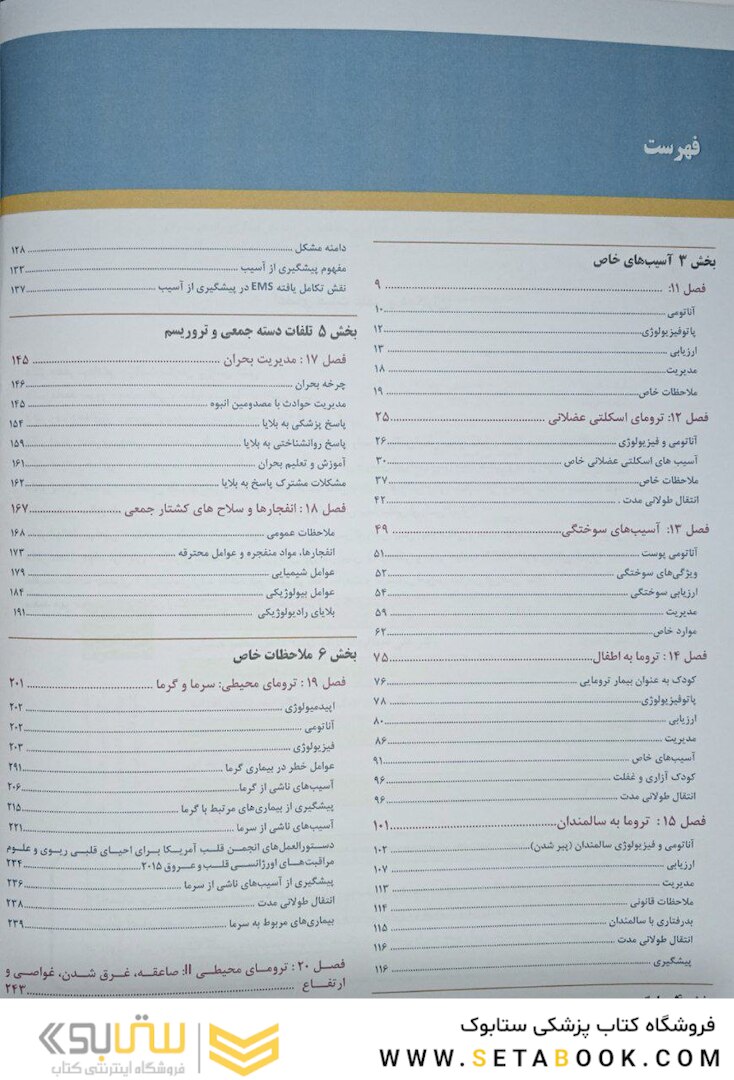 فهرست
بخش ۳ آسیب‌های خاص
فصل ۱۱: ۹
آناتومی ۱۰
پاتوفیزیولوژی ۱۲
ارزیابی ۱۳
مدیریت ۱۸
ملاحظات خاص ۱۹
فصل ۱۲: ترومای اسکلتی عضلانی ۲۵
آناتومی و فیزیولوژی ۲۶
آسیب های اسکلتی عضلانی خاص ۳۰
ملاحظات خاص ۳۷
انتقال طولانی مدت ۴۲
فصل ۱۳: آسیب‌های سوختگی ۴۹
آناتومی پوست ۵۱
ویژگی‌های سوختگی ۵۲
ارزیابی سوختگی ۵۴
مدیریت ۵۹
موارد خاص ۶۲
فصل ۱۴: تروما به اطفال ۷۵
کودک به عنوان بیمار ترومایی ۷۶
پاتوفیزیولوژی ۷۸
ارزیابی ۸۰
مدیریت ۸۶
آسیب‌های خاص ۹۱
کودک آزاری و غفلت ۹۶
انتقال طولانی مدت ۹۶
فصل ۱۵: تروما به سالمندان ۱۰۱
آناتومی و فیزیولوژی سالمندان (پیر شدن) ۱۰۲
ارزیابی ۱۰۷
مدیریت ۱۱۳
ملاحظات قانونی ۱۱۴
بدرفتاری با سالمندان ۱۱۵
انتقال طولانی مدت ۱۱۶
پیشگیری ۱۱۶
دامنه مشکل ۱۲۸
مفهوم پیشگیری از آسیب ۱۳۲
نقش تکامل یافته EMS در پیشگیری از آسیب ۱۳۷
بخش ۵ تلفات دسته جمعی و تروریسم
فصل ۱۷: مدیریت بحران ۱۴۵
چرخه بحران ۱۴۶
مدیریت حوادث با مصدومین انبوه ۱۴۵
پاسخ پزشکی به بلایا ۱۵۴
پاسخ روانشناختی به بلایا ۱۵۹
آموزش و تعلیم بحران ۱۶۱
مشکلات مشترک پاسخ به بلایا ۱۶۲
فصل ۱۸: انفجارها و سلاح های کشتار جمعی ۱۶۷
ملاحظات عمومی ۱۶۸
انفجارها، مواد منفجره و عوامل محترقه ۱۷۳
عوامل شیمیایی ۱۷۹
عوامل بیولوژیکی ۱۸۴
بلایای رادیولوژیکی ۱۹۱
بخش ۶ ملاحظات خاص
فصل ۱۹: ترومای محیطی: سرما و گرما ۲۰۱
اپیدمیولوژی ۲۰۲
آناتومی ۲۰۲
فیزیولوژی ۲۰۳
عوامل خطر در بیماری گرما ۲۹۱
آسیب‌های ناشی از گرما ۲۰۶
پیشگیری از بیماری‌های مرتبط با گرما ۲۱۵
آسیب‌های ناشی از سرما ۲۲۱
دستورالعمل‌های انجمن قلب آمریکا برای احیای قلبی ریوی و علوم
مراقبت‌های اورژانسی قلب و عروق ۲۰۱۵ ۲۳۴
پیشگیری از آسیب‌های ناشی از سرما ۲۳۶
انتقال طولانی مدت ۲۳۸
بیماری‌های مربوط به سرما ۲۳۹
فصل ۲۰: ترومای محیطی II: صاعقه، غرق شدن، غواصی و
ارتفاع ۲۴۳
فروشگاه کتاب پزشکی ستابوک
WWW.SETABOOK.COM
ستابوک
فروشگاه اینترنتی کتاب